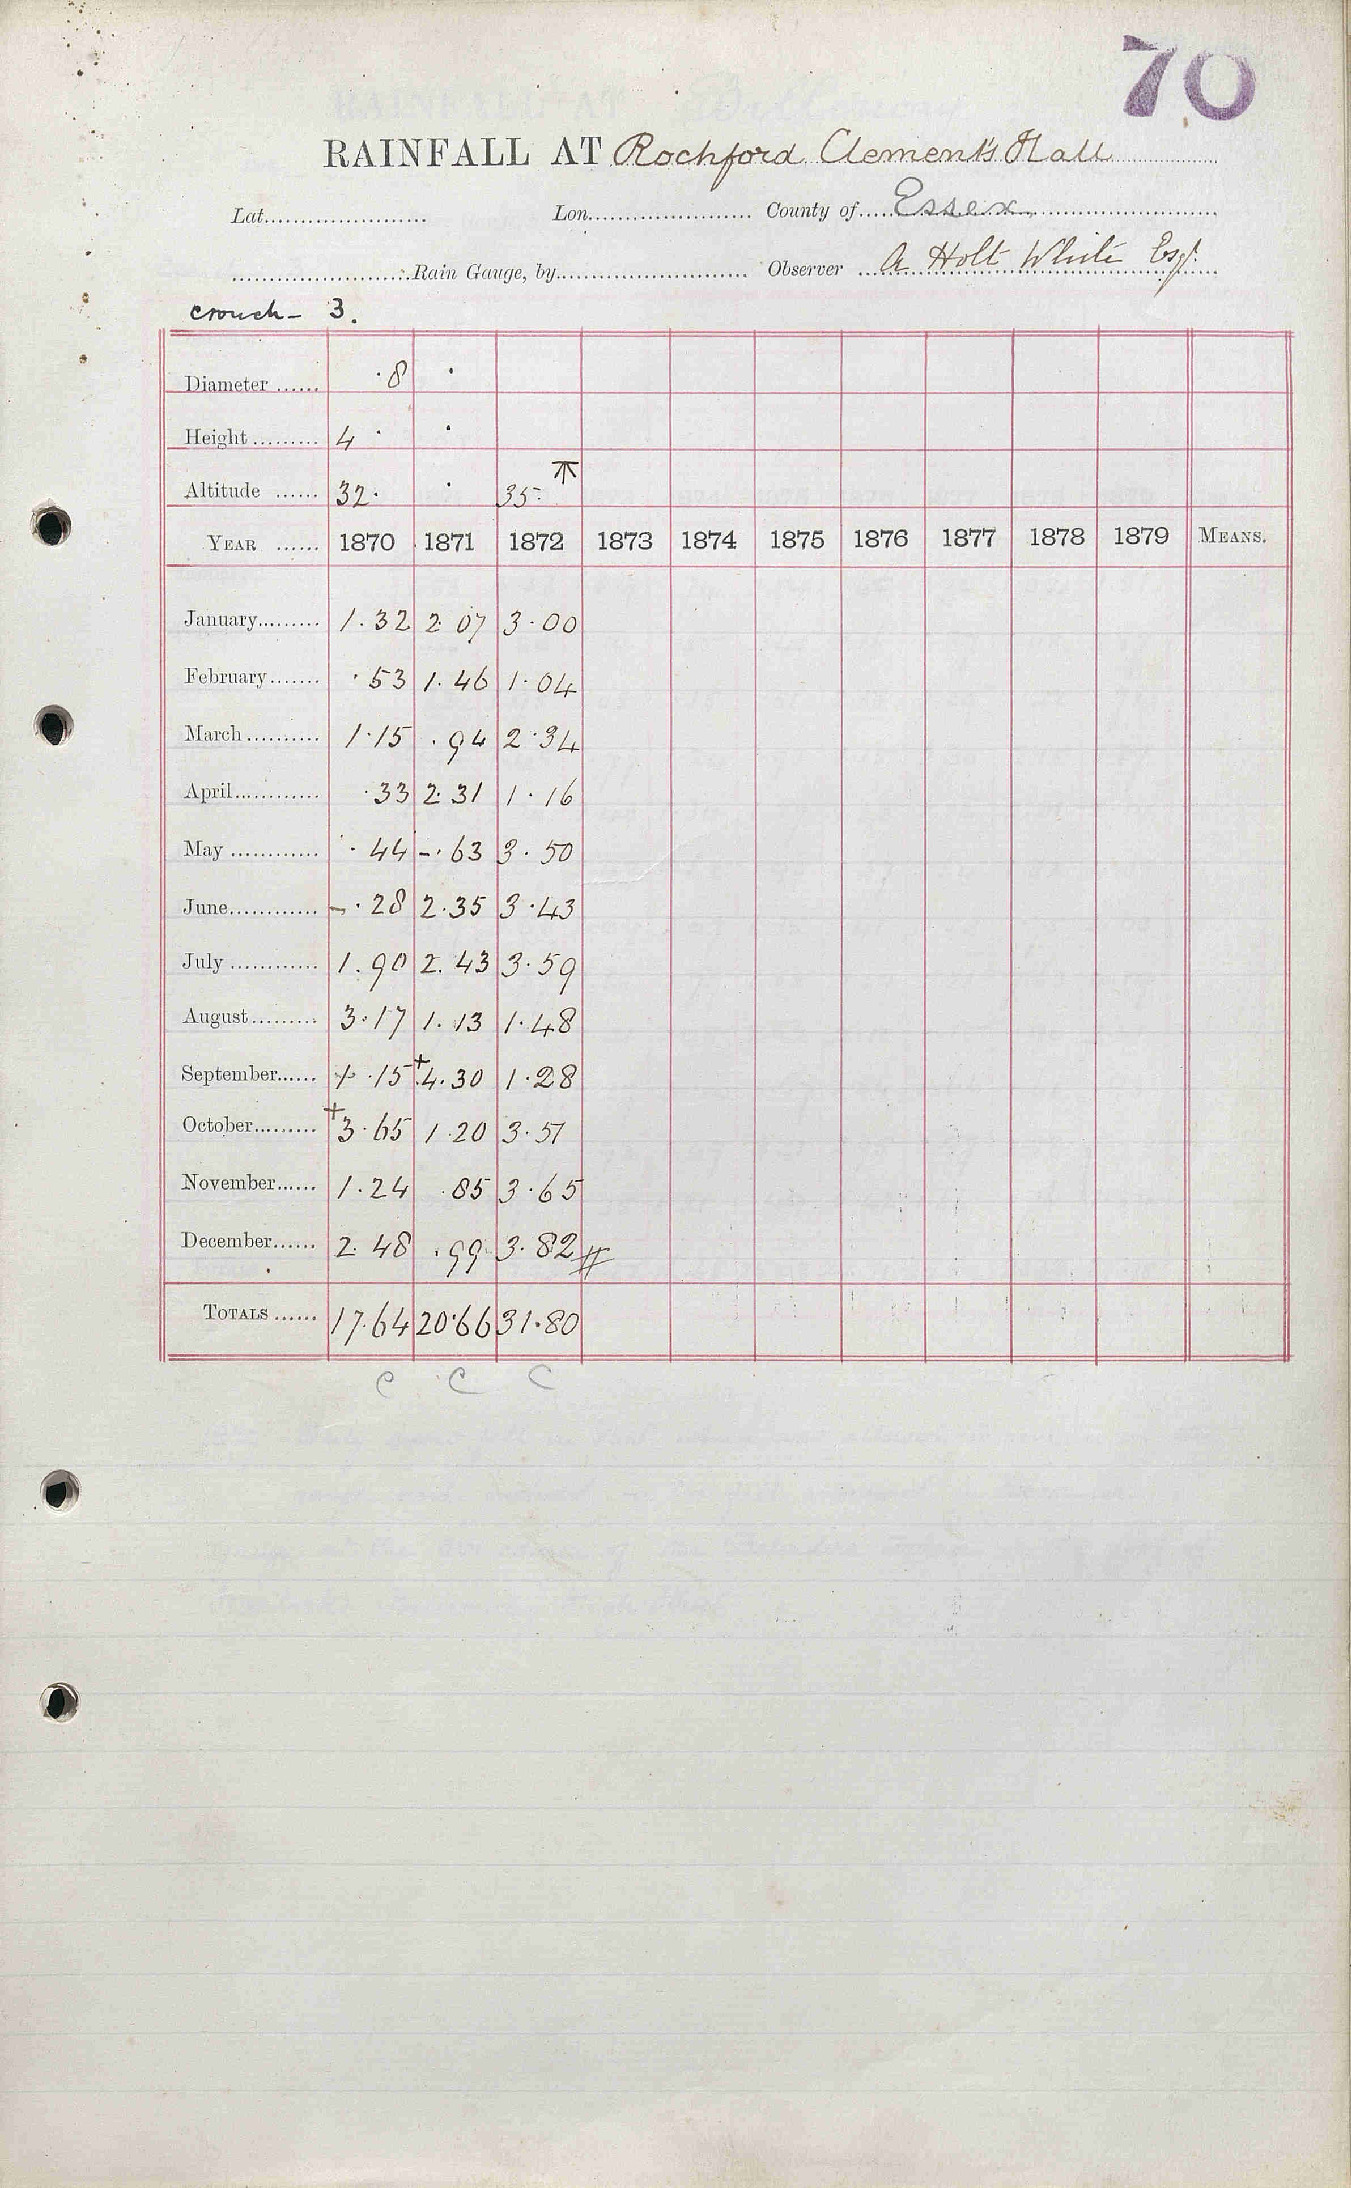 70
RAINFALL AT Rochford Clement's Hall
Lat...................... Lon...................... County of..... Essex
Rain Gauge, by.......................... Observer ... A Holt White Esq.
Crouch - 3.
Diameter ...... ·8 ·
Height ......... 4 · ·
Altitude ...... 32· · 35·
YEAR ...... 1870 1871 1872 1873 1874 1875 1876 1877 1878 1879 MEANS.
January......... 1.32 2.07 3.00
February....... .53 1.46 1.04
March .......... 1.15 .94 2.34
April............ .33 2.31 1.16
May ............ .44 -.63 3.50
June............ -.28 2.35 3.43
July ............ 1.90 2.43 3.59
August......... 3.17 1.13 1.48
September...... 1.15 +4.30 1.28
October......... +3.65 1.20 3.51
November...... 1.24 .85 3.65
December...... 2.48 .99 3.82 #
TOTALS ...... 17.64 20.66 31.80
C C C